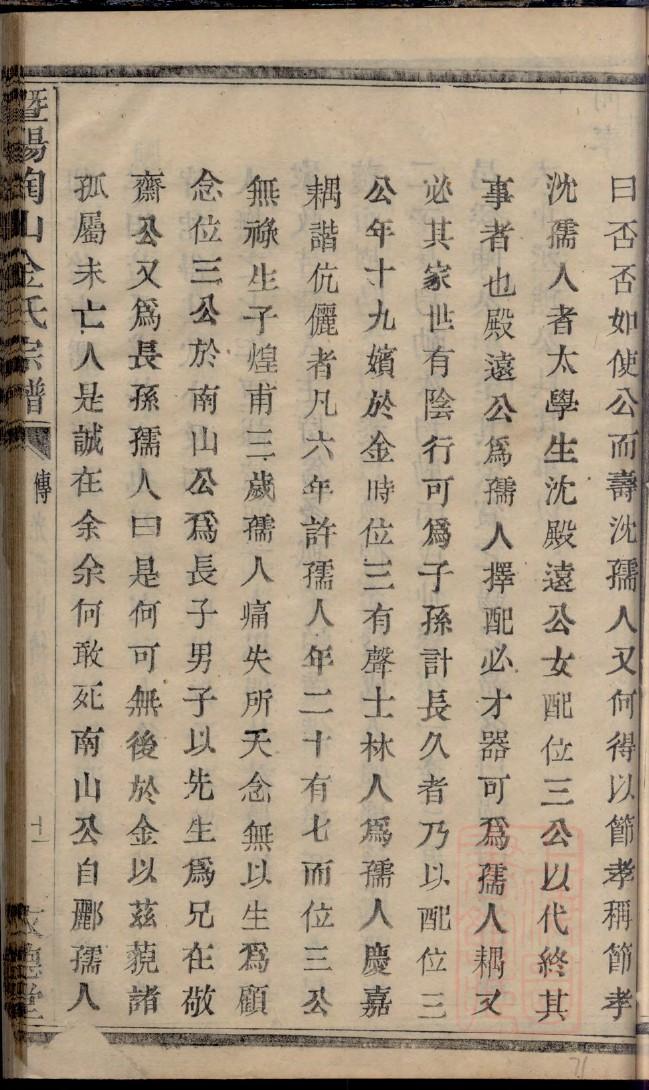 曰否否如使公而壽沈孺人又何得以節孝稱節孝
沈孺人者太學生沈殿遠公女配位三公以代終其
事者也殿遠公爲孺人擇配必才器可爲孺人耦又
必其家世有陰行可爲子孫計長久者乃以配位三
公年十九嬪於金時位三有聲士林人爲孺人慶嘉
耦諧伉儷者凡六年許孺人年二十有七而位三公
無祿生子煌甫三歲孺人痛失所天念無以生爲顧
念位三公於南山公爲長子男子以先生爲兄在敬
齋公又爲長孫孺人曰是何可無後於金以茲藐諸
孤屬未亡人是誠在余余何敢死南山公自酈孺人
暨陽陶山金氏宗譜
傳
十一
友德堂
71